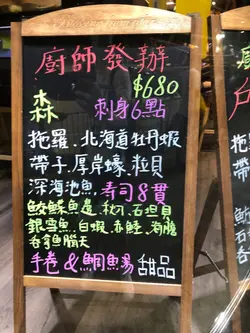 廚師發辦
$680
森 刺身6點
拖羅、北海道牡丹蝦
帶子、厚岸蠔、粒貝
深海池魚、壽司8貫
鮫鰈魚邊、秋刀、石垣貝
銀雪魚、白蝦、赤鯥、海膽
吞拿魚腩天
手卷&鯛魚湯 甜品